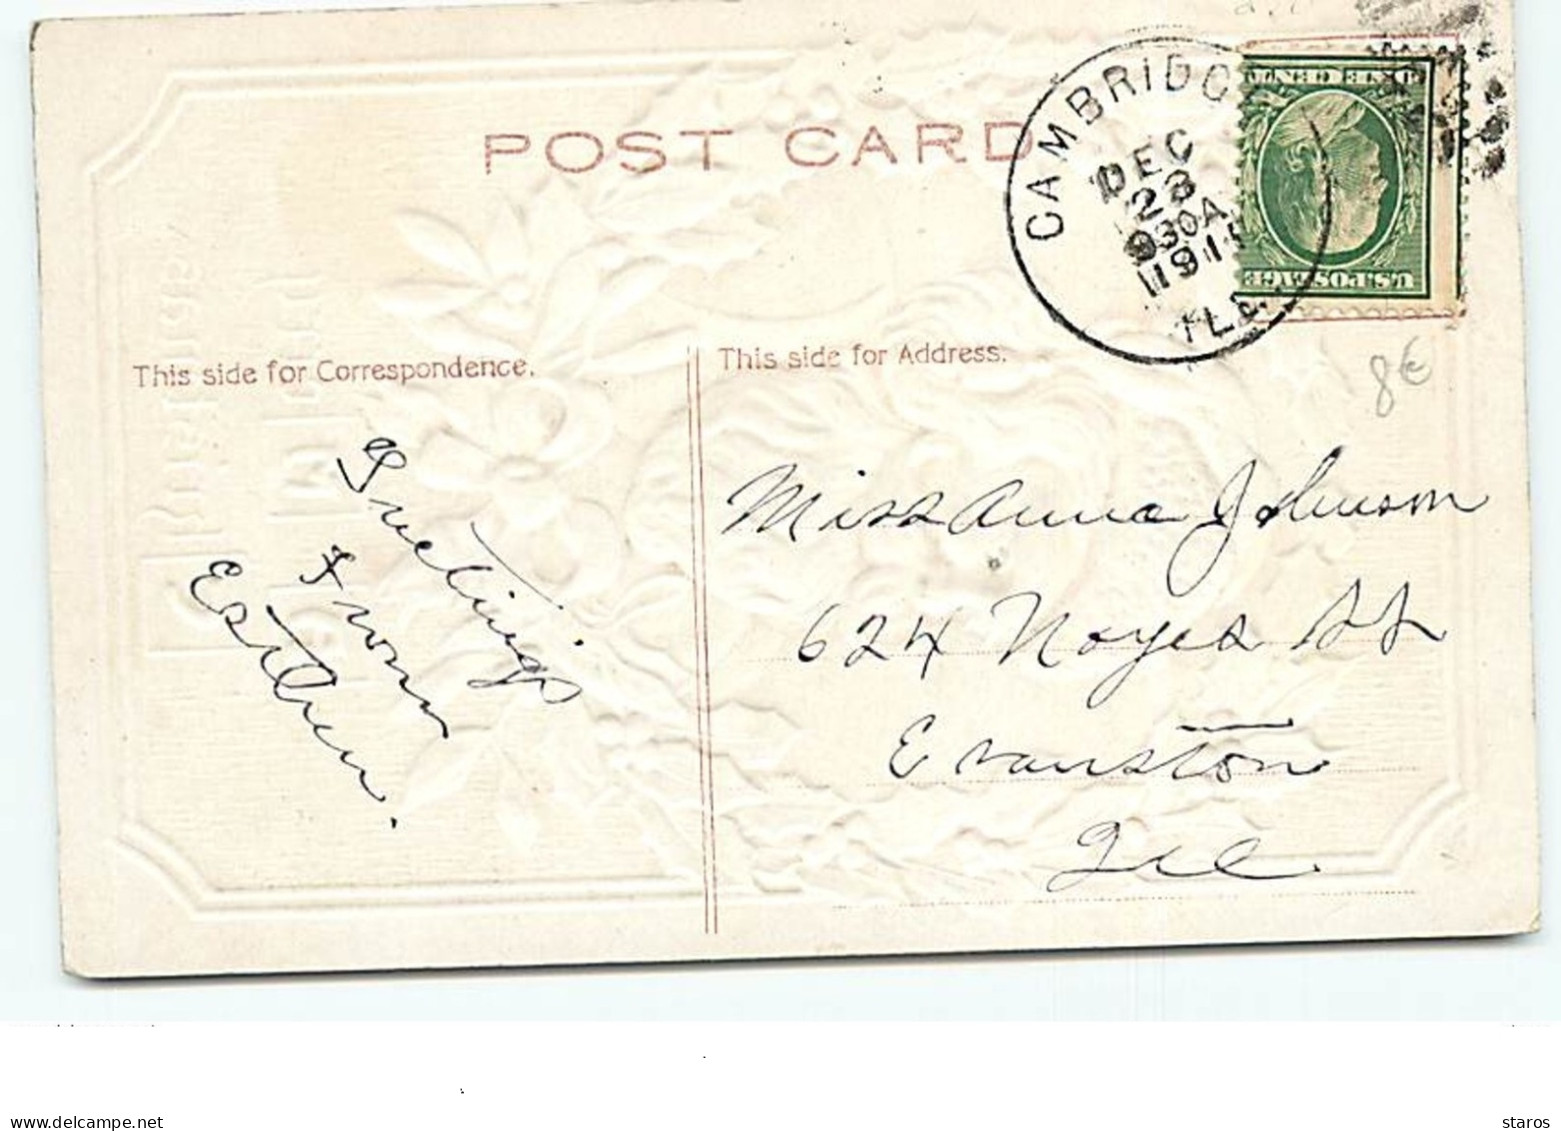 POST CARD
CAMBRIDGE
DEC
23
930A
1911
ILL.
ONE CENT
U.S. POSTAGE
This side for Correspondence.
This side for Address.
8€
Greetings
from
Esther.
Miss Anna Johnson
624 Noyes St
Evanston
Ill
www.delcampe.net
staros